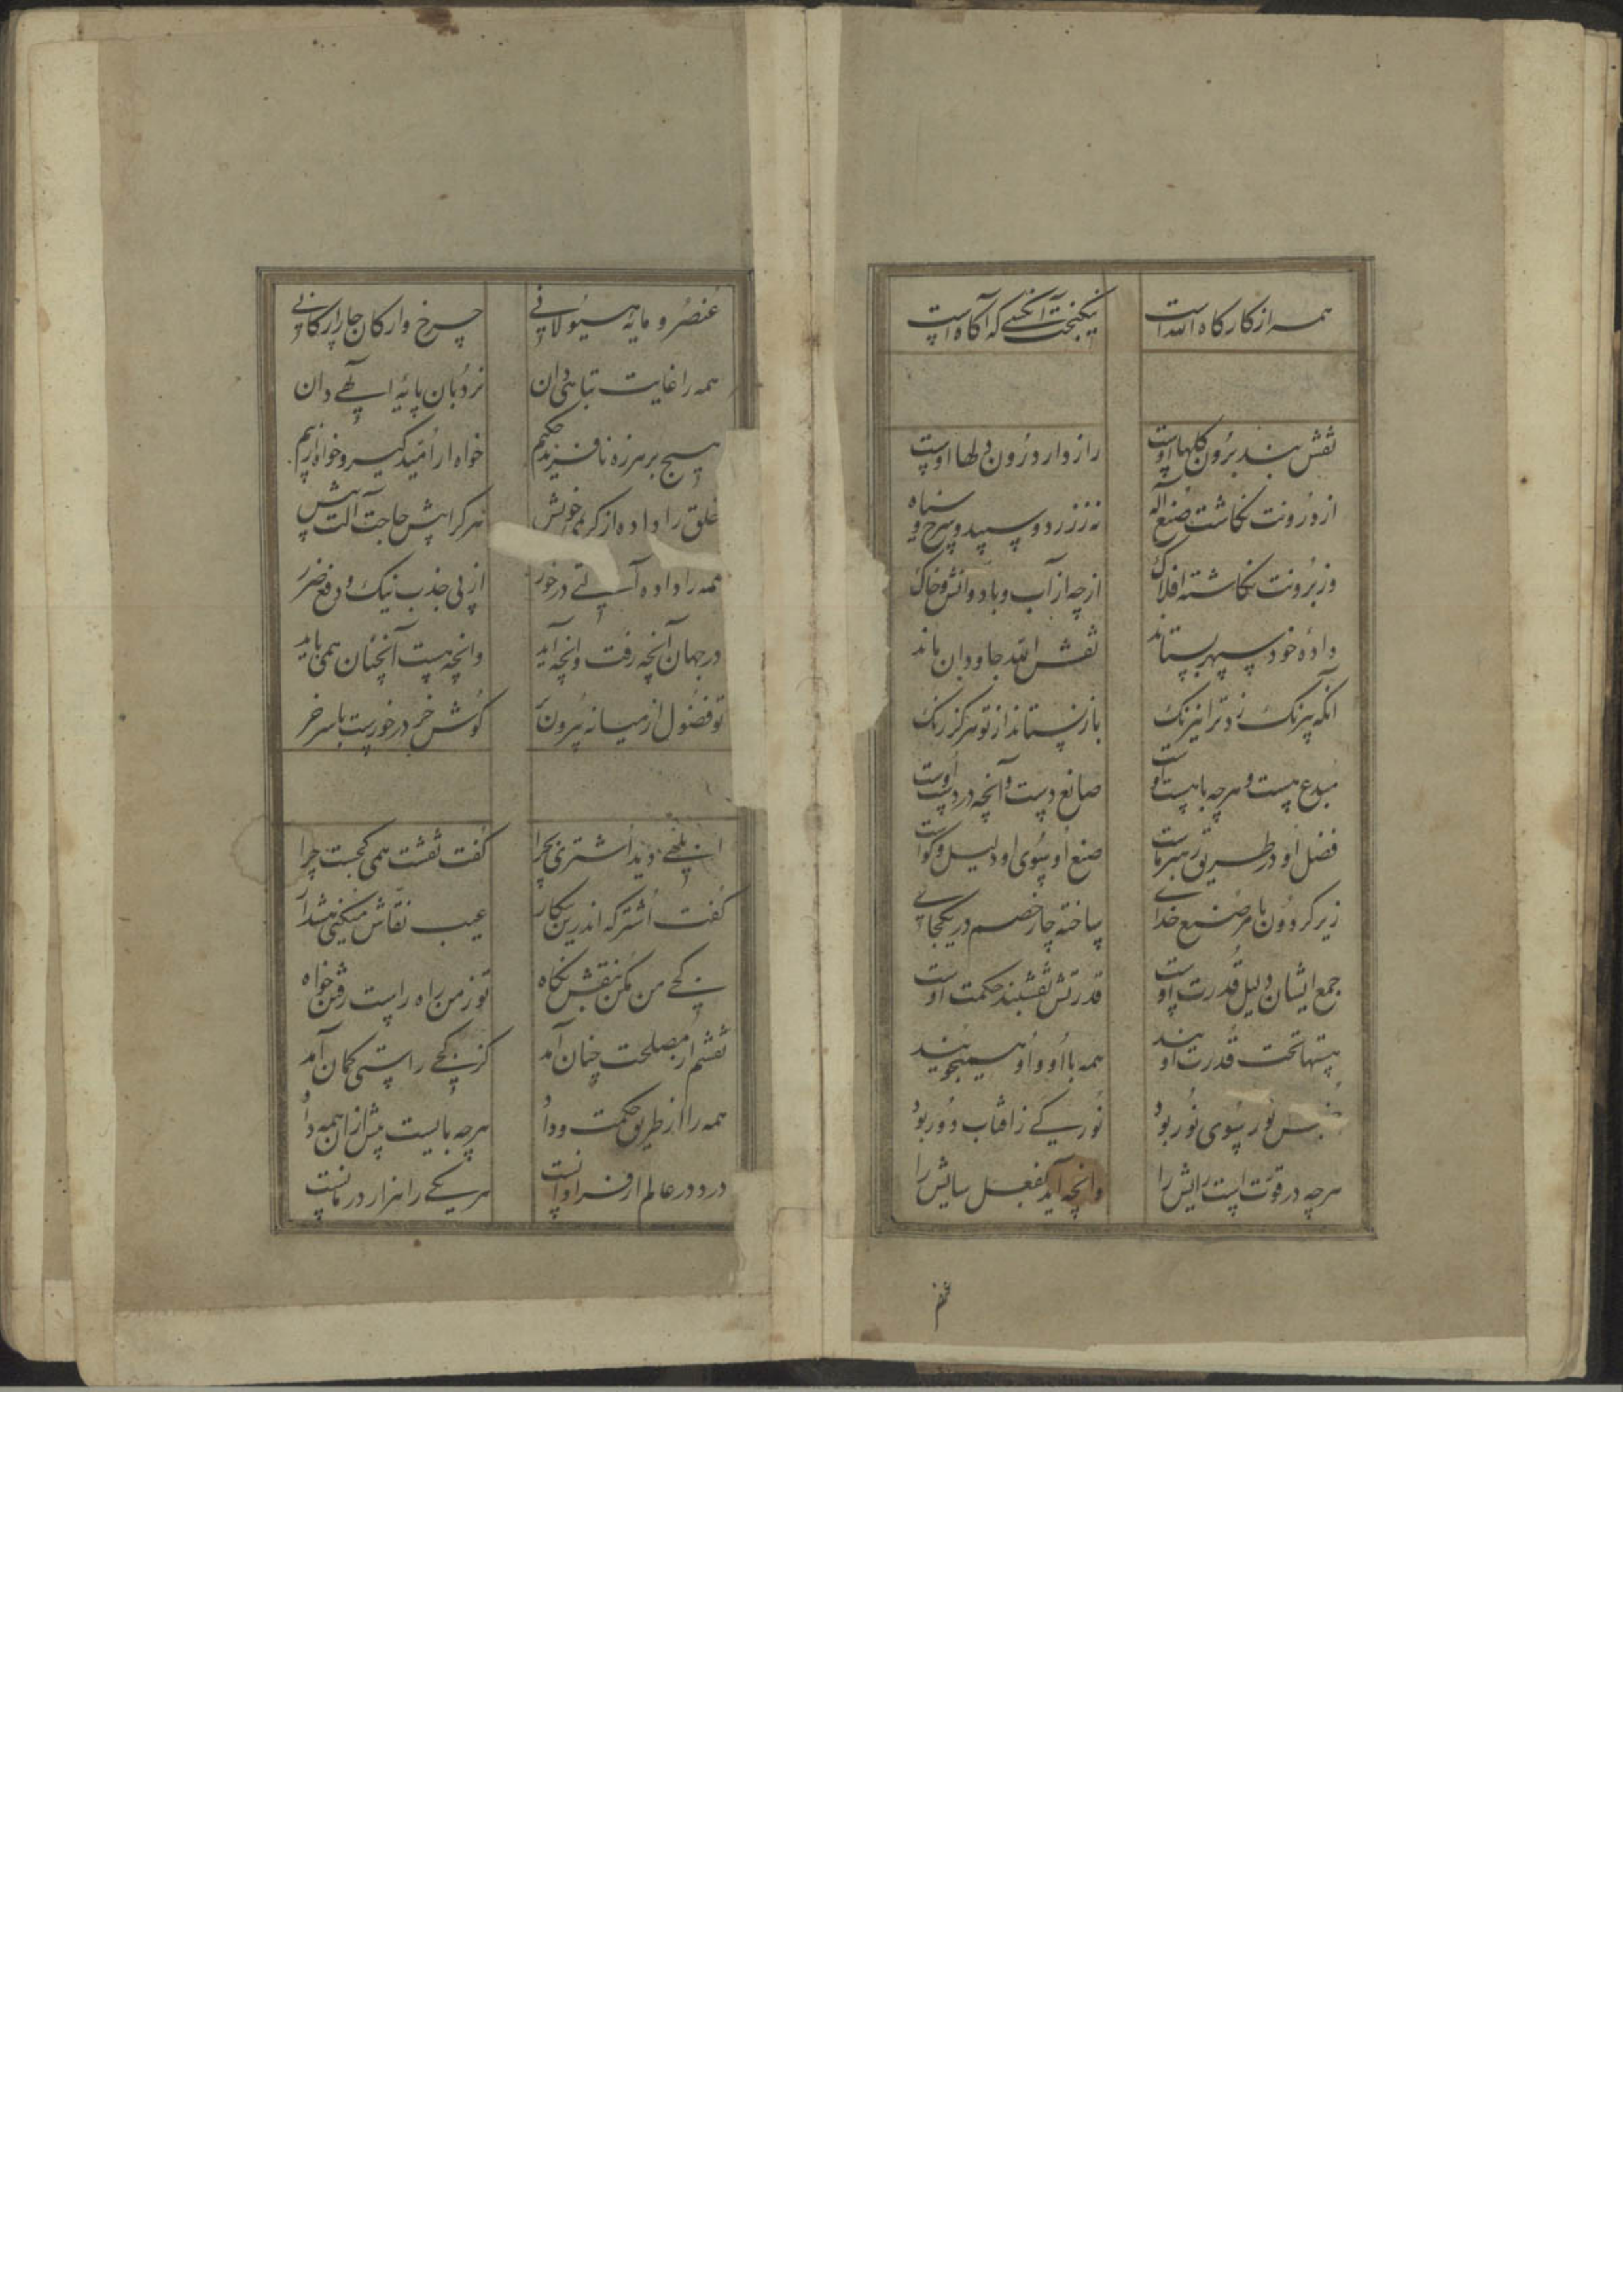 همه از کارگاه الله است نیکبخت آنکسی که آگاه است
نقش بند برون گلها اوست راز دار درون دلها اوست
از درونت نگاشت صنع آله نه ز زرد و سپید و سرخ و سیاه
وز برونت نگاشته افلاک از چه از آب و باد و آتش و خاک
داده خود سپهر بستاند نقش الله جاودان ماند
آنکه بیرنک زد ترا نیرنک باز نستاند از تو هرگز رنک
مبدع هست و هرچه باهست اوست صانع دست و آنچه در دست اوست
فضل او در طریق رهبر ماست صنع او سوی او دلیل و گواست
زیر گردون بامر صنع خدای ساخته چار خصم در یکجای
جمع ایشان دلیل قدرت اوست قدرتش نقشبند حکمت اوست
هستها تحت قدرت اویند همه با او و او همیجویند
جنبش نور سوی نور بود نور کی ز افتاب دور بود
هرچه در قوتست رایش را وانچه آید بفعل سایش را
عنصر و مایه هیولانی چرخ وارکان چار ارکانی
همه را غایت تباهی دان نردبان پایه الهی دان
هیچ بر هرزه نافرید حکیم خواه ازامید گیر و خواه از بیم
خلق را داده از کریمی خویش هر کرا بیش حاجت آلت بیش
همه را داده آلتی درخور از پی جذب نیک و دفع ضرر
در جهان آنچه رفت وانچه آید وانچه هست آنچنان همی باید
تو فضول از میانه بیرون بر گوش خر درخورست با سر خر
ابلهی دید اشتری بچرا گفت نقشت همی کجست چرا
گفت اشتر که اندرین پیکار عیب نقاش میکنی هشدار
در کجی من مکن بنقش نگاه تو ز من راه راست رفتن خواه
نقشم از مصلحت چنان آمد کز کجی راستی کمان آمد
همه را از طریق حکمت و داد هرچه بایست بیش از آن همه داد
درد در عالم ار فراوانست هر یکی را هزار درمانست